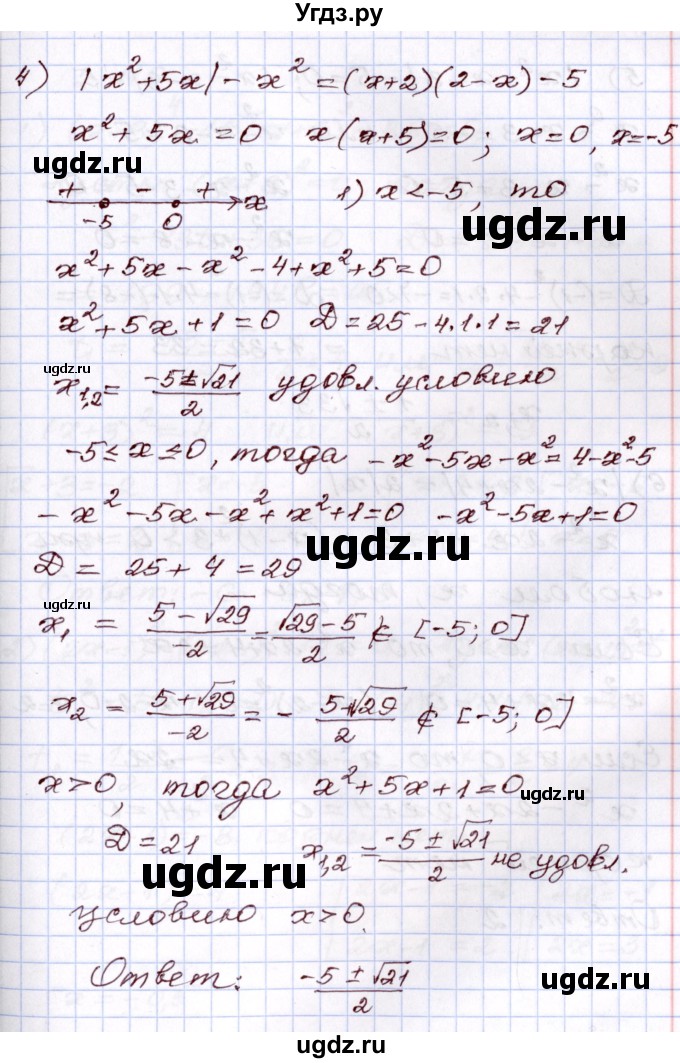 Угдз.ру
4) |x²+5x|-x²=(x+2)(2-x)-5
x²+5x=0 x(x+5)=0; x=0, x=-5
ugdz.ru ugdz.ru
+ - + x 1) x<-5, то
-5 0
x²+5x-x²-4+x²+5=0
x²+5x+1=0 D=25-4·1·1=21
ugdz.ru
x₁,₂ = (-5±√21)/2 удовл. условию
-5≤x≤0, тогда -x²-5x-x²=4-x²-5
-x²-5x-x²+x²+1=0 -x²-5x+1=0
ugdz.ru
D = 25+4=29
ugdz.ru
x₁ = (5-√29)/-2 = (√29-5)/2 ∉ [-5; 0]
x₂ = (5+√29)/-2 = -(5+√29)/2 ∉ [-5; 0]
x>0, тогда x²+5x+1=0
ugdz.ru
D=21 x₁,₂ = (-5±√21)/2 не удовл.
ugdz.ru
условию x>0.
Ответ: (-5±√21)/2
ugdz.ru ugdz.ru